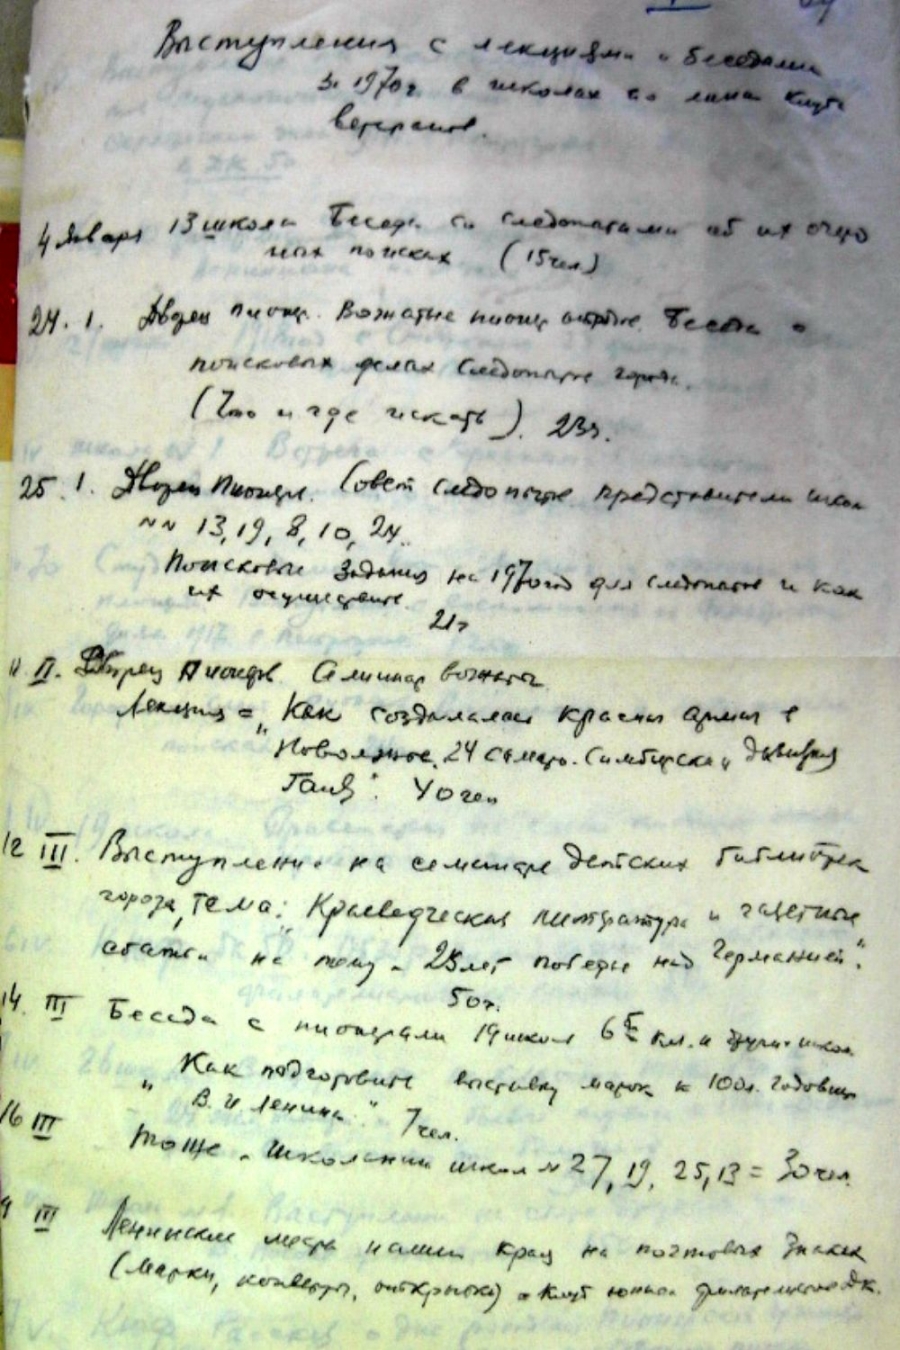 Выступления с лекциями и беседами
за 1970г в школах по линии клуба
ветеранов.
4 Января 13 школа Беседа со следопытами об их очеред
ных поисках (15чел)
24. 1. Дворец пионер. Вожатые пионер отрядов. Беседа о
поисковых делах следопытов города.
(Что и где искать). 23ч.
25. 1. Дворец Пионер. Совет следопытов представители школ
№№ 13, 19, 8, 10, 24.
Поисковые задания на 1970год для следопытов и как
их осуществить
21ч
II. Дворец Пионеров. Семинар вожатых
Лекция = „Как создавалась красная армия в
Поволжье. 24 Самаро-Симбирская дивизия
Гая". 40чел
12 III. Выступление на семинаре детских библиотек
города, Тема: „Краеведческая литература и газетные
статьи на тему „25лет победы над Германией".
50ч.
14. III Беседа с пионерами 19 школ 6 кл. и других школ
„Как подготовить выставку марок к 100л. годовщ
В. И Ленина." 7чел.
16 III тоже. Школами школ № 27, 19, 25, 13 = 30чел.
III Ленинские места нашего края на почтовых знаках
(марки, конверты, открытки) Клуб юных филателистов ДК.